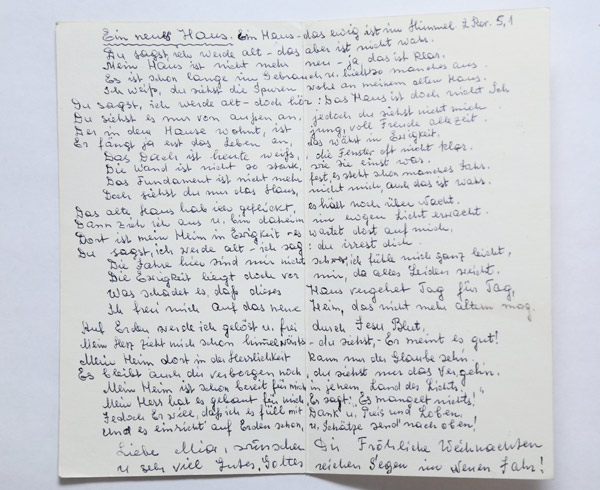 Ein neues Haus. Ein Haus - das ewig ist im Himmel 2. Kor. 5,1
Du sagst, ich werde alt - das aber ist nicht wahr.
Mein Haus ist nicht mehr neu - ja, das ist klar.
Es ist schon lange im Gebrauch u. hielt so manches aus.
Ich weiß, du siehst die Spuren wohl an meinem alten Haus.
Du sagst, ich werde alt - doch hör: Das Haus ist doch nicht Ich
Du siehst es nur von außen an, jedoch du siehst nicht mich.
Der in dem Hause wohnt, ist jung, voll Freude allezeit.
Er fängt ja erst das Leben an, das währt in Ewigkeit.
Das Dach ist heute weiß, die Fenster oft nicht klar.
Die Wand ist nicht so stark, wie sie einst war.
Das Fundament ist nicht mehr fest, es steht schon manches Jahr.
Doch siehst du nur das Haus, nicht mich, auch das ist wahr.
Das alte Haus hab ich geflickt, es hält noch über Nacht.
Dann zieh ich aus u. bin daheim im ewgen Licht erwacht.
Dort ist mein Heim in Ewigkeit - es wartet dort auf mich.
Du sagst, ich werde alt - ich sag: du irrest dich.
Die Jahre hier sind mir nicht schwer, ich fühle mich ganz leicht,
Die Ewigkeit liegt doch vor mir, da alles Leiden weicht.
Was schadet es, daß dieses Haus vergehet Tag für Tag,
Ich freu mich auf das neue Heim, das nicht mehr altern mag.
Auf Erden werde ich gelöst u. frei durch Jesu Blut,
Mein Herz zieht mich schon himmelwärts - du siehst, - Er meint es gut!
Mein Heim dort in der Herrlichkeit kann nur der Glaube sehn,
Es bleibt auch dir verborgen noch, du siehst nur das Vergehn.
Mein Heim ist schon bereit für mich in jenem "Land des Lichts!"
Mein Herr hat es gebaut für mich, Er sagt: "Es mangelt nichts!"
Jedoch Er will, daß ich es füll mit Dank u. Preis und Loben.
und es einricht auf Erden schon, u. Schätze send nach oben!
Liebe Mia, wünschen Dir Fröhliche Weihnachten
u. sehr viel Gutes, Gottes reichen Segen im Neuen Jahr!